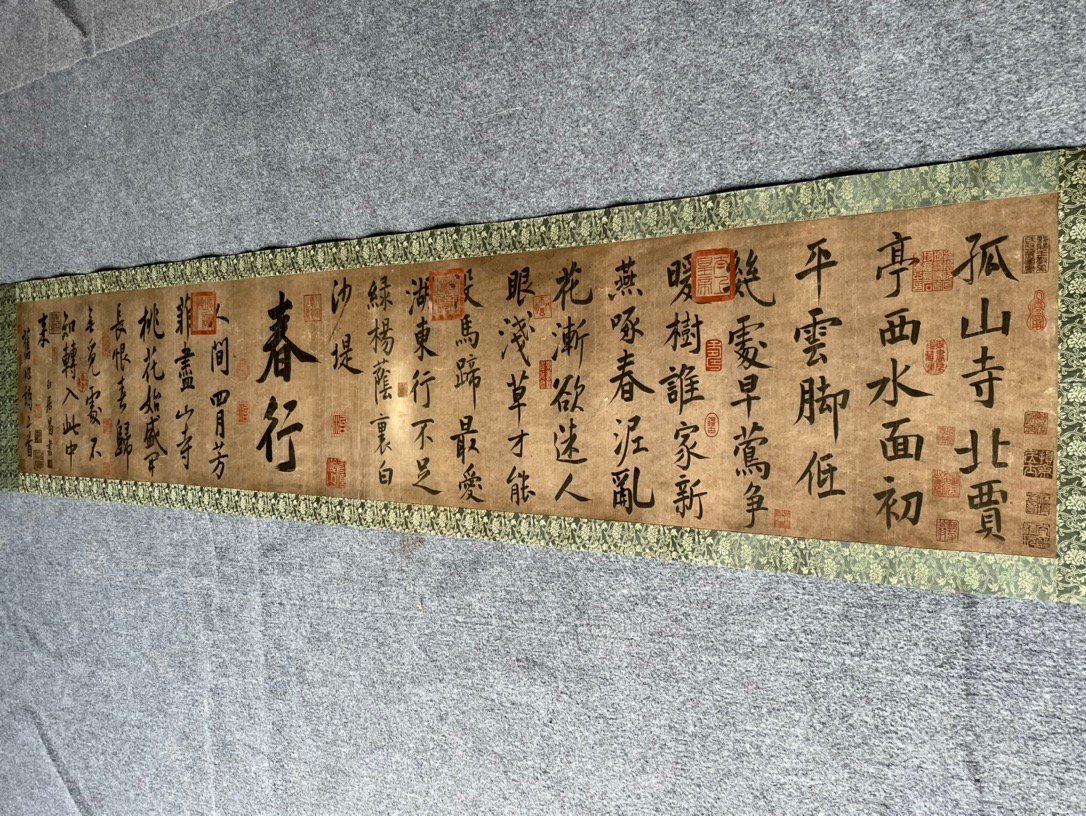 孤山寺北賈
亭西水面初
平雲脚低
幾處早鶯争
暖樹誰家新
燕啄春泥亂
花漸欲迷人
眼淺草才能
没馬蹄最愛
湖東行不足
緑楊蔭裏白
沙堤
春行
人間四月芳
菲盡山寺
桃花始盛開
長恨春歸
無覓處不
知轉入此中
來
白居易書